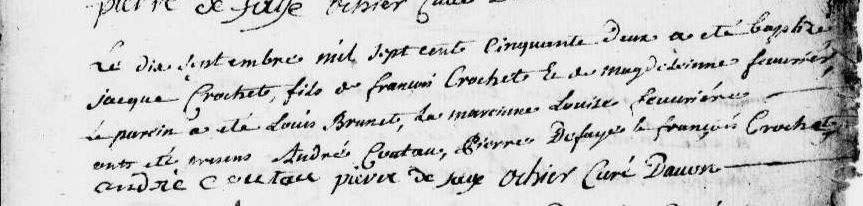 pierre de faye ochier Curé
Le dix septembre mil sept cent Cinquante Deux a eté baptize
jacque Crochet, fils de françois Crochet & de magdelenne feuvriér
le parein a eté Louis Brunet, La mareinne Louise feuvriére
onts eté presens André Coutau, Pierre Defaye & françois Crochet
andrè coutau pierre de faye Ochier Curé Davon